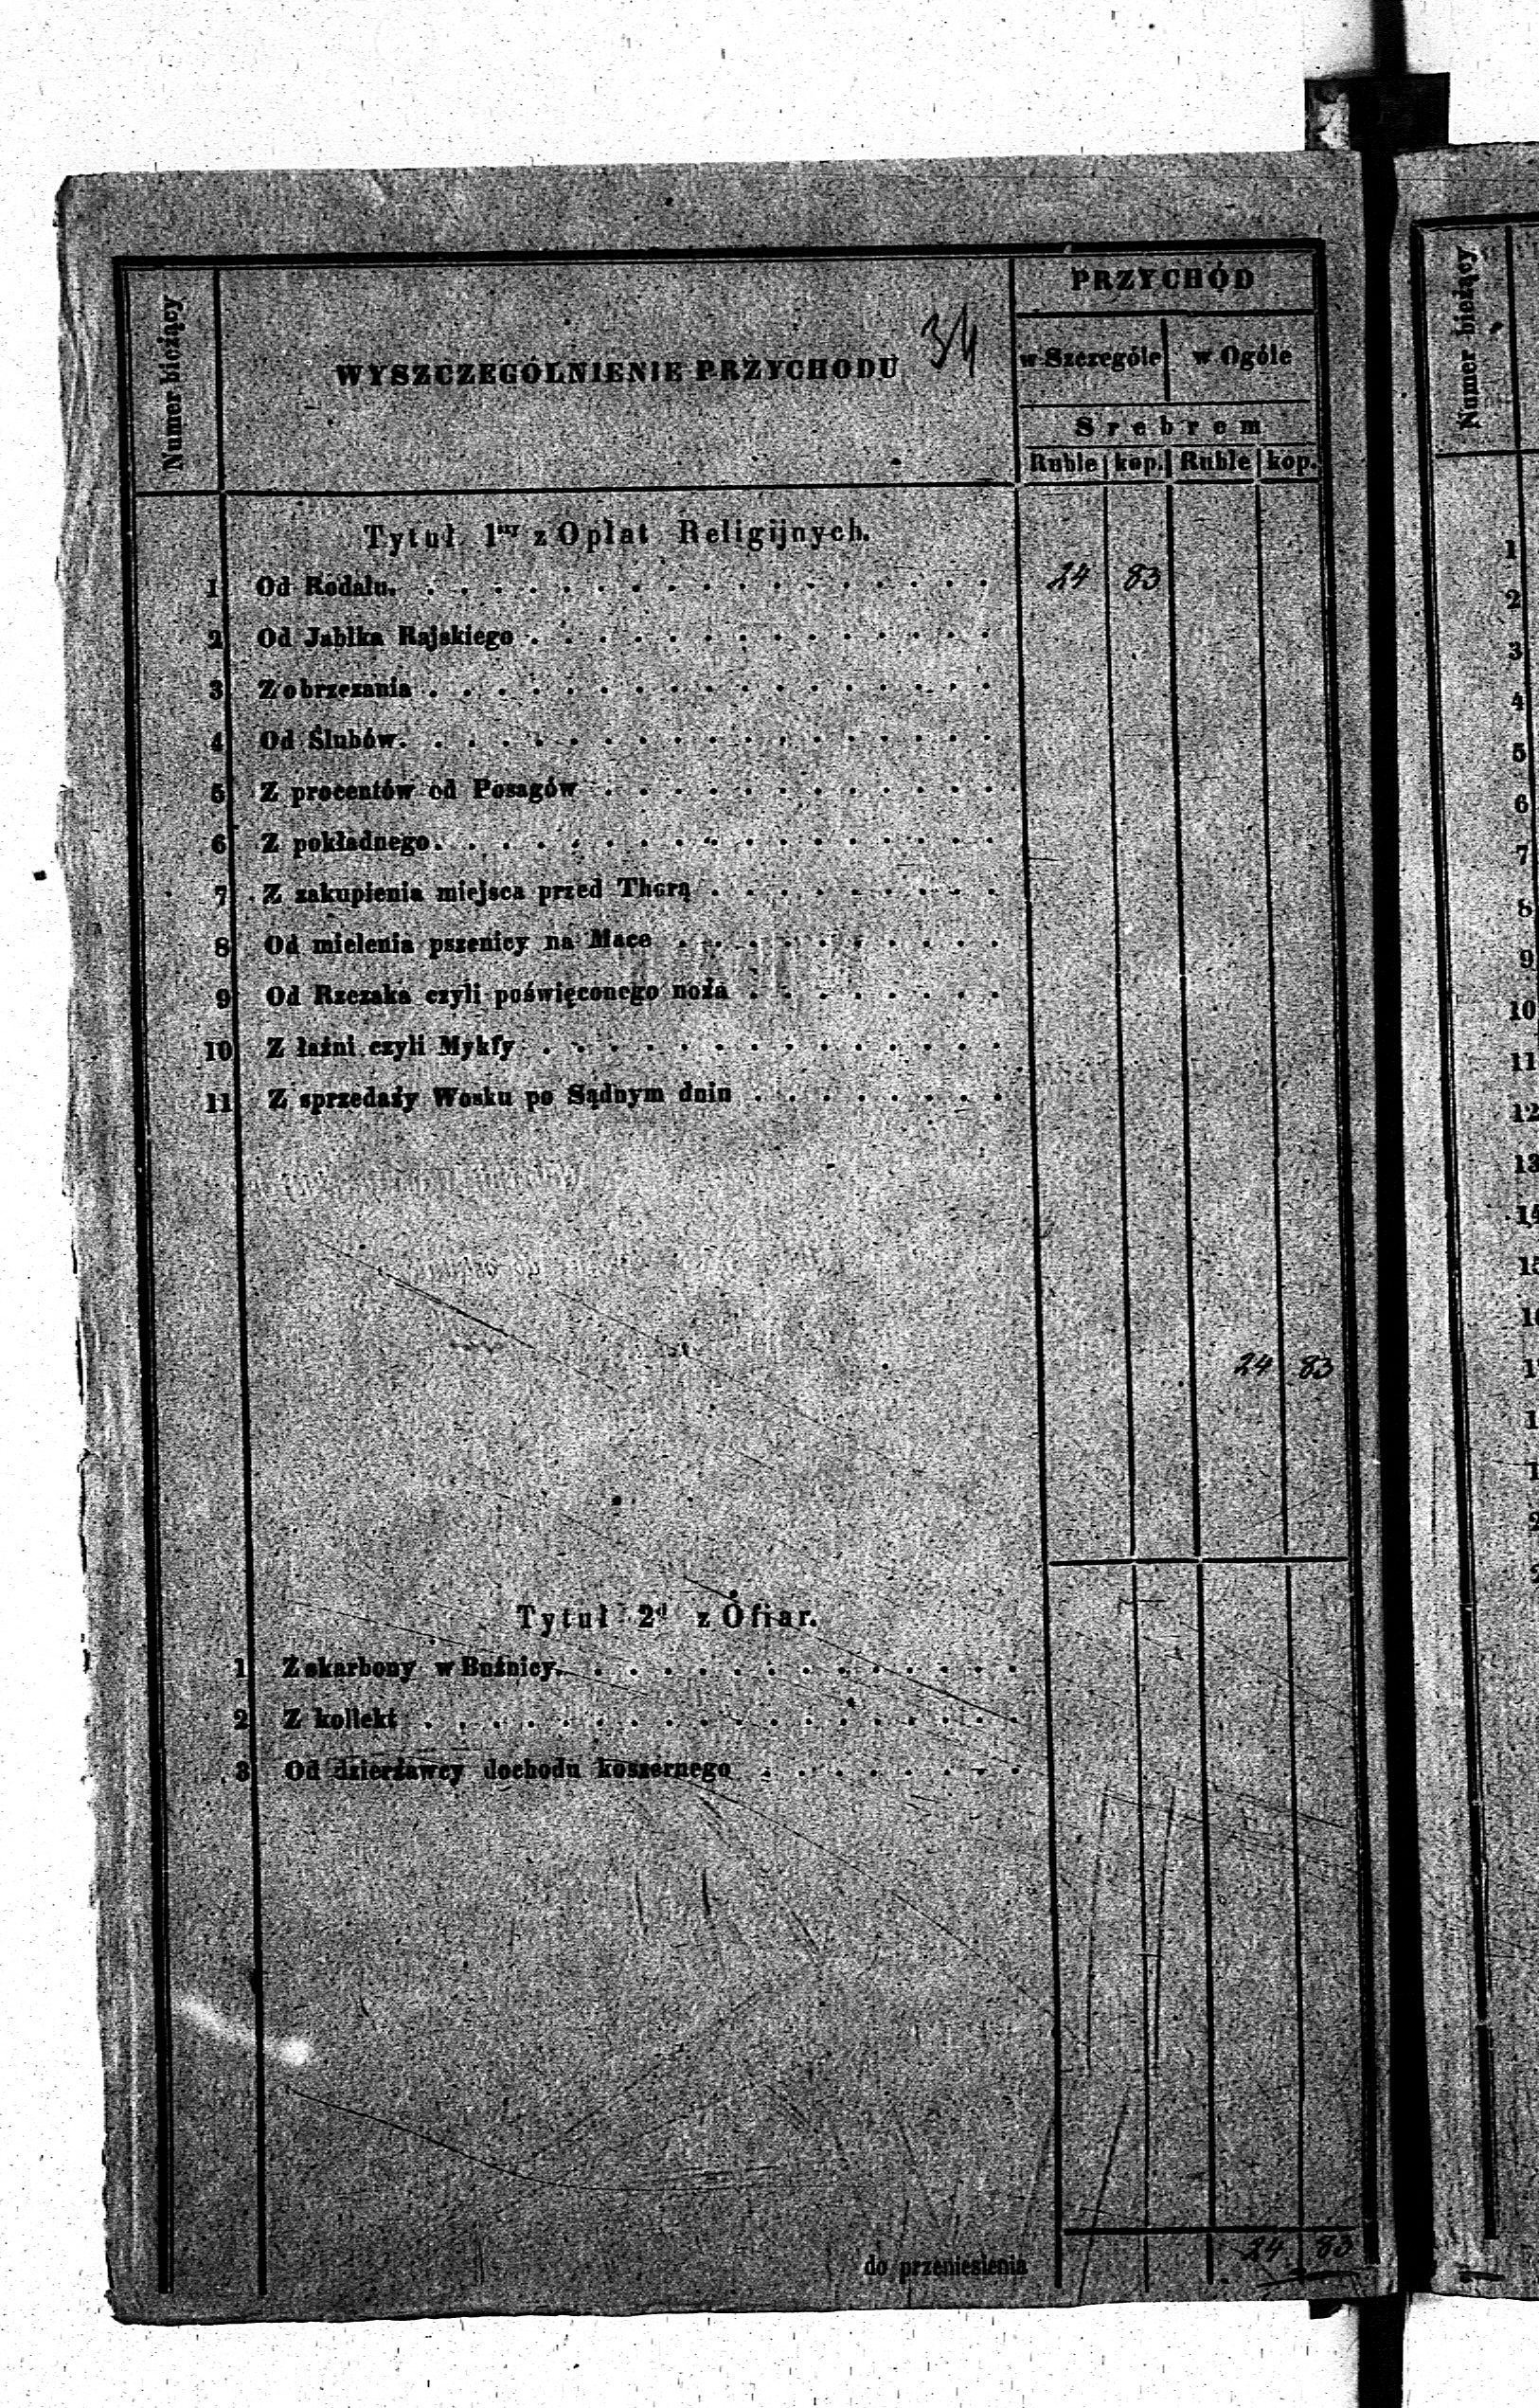 Numer bieżący
WYSZCZEGÓLNIENIE PRZYCHODU
34
PRZYCHÓD
w Szczególe w Ogóle
Srebrem
Ruble kop. Ruble kop.
Tytuł 1szy z Opłat Religijnych.
1 Od Rodału. 24 83
2 Od Jabłka Rajskiego
3 Z obrzezania
4 Od Ślubów.
5 Z procentów od Posagów
6 Z pokładnego
7 Z zakupienia miejsca przed Thorą
8 Od mielenia pszenicy na Mace
9 Od Rzezaka czyli poświęconego noża
10 Z łaźni czyli Mykfy
11 Z sprzedaży Wosku po Sądnym dniu
24 83
Tytuł 2gi z Ofiar.
1 Z skarbony w Bużnicy.
2 Z kollekt
3 Od dzierżawcy dochodu koszernego
do przeniesienia 24 83
Numer bieżący
1
2
3
4
5
6
7
8
9
10
11
12
13